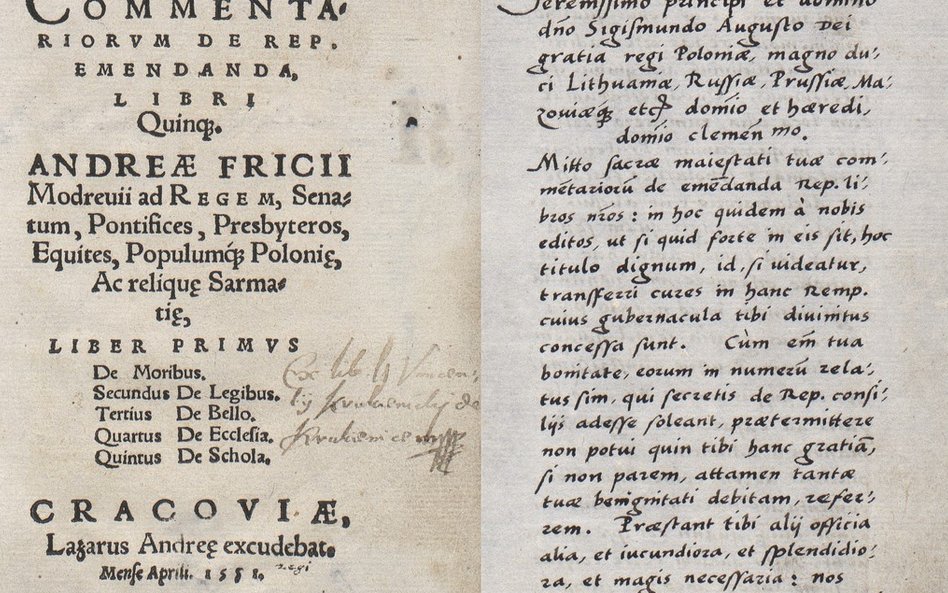 COMMENTA-
RIORVM DE REP.
EMENDANDA,
LIBRI
Quinq;.
ANDREÆ FRICII
Modreuii ad REGEM, Sena-
tum, Pontifices, Presbyteros,
Equites, Populumq́; Polonię,
Ac relique̜ Sarma-
tię,
LIBER PRIMVS
De Moribus.
Secundus De Legibus.
Tertius De Bello.
Quartus De Ecclesia.
Quintus De Schola.
Ex lib
CRACOVIÆ,
Lazarus Andreę excudebat.
Mense Aprili. 1551.
Serenissimo principi et domino
dño Sigismundo Augusto Dei
gratia regi Poloniæ, magno du-
ci Lithuaniæ, Russiæ, Prussiæ, Ma-
zouiæq́; etc̃ domĩo et hæredi,
domĩo clemen mo.
Mitto sacræ maiestati tuæ com-
mẽtariorũ de emẽdanda Rep. li-
bros nr̃os: in hoc quidem à nobis
editos, ut si quid forte in eis sit, hoc
titulo dignum, id, si uideatur,
transferri cures in hanc Remp.
cuius gubernacula tibi diuinitus
concessa sunt. Cùm em̃ tua
bonitate, eorum in numerũ rela-
tus sim, qui secretis de Rep. consi-
lijs adesse soleant, prætermittere
non potui quin tibi hanc gratiã,
si non parem, attamen tantæ
tuæ benignitati debitam, refer-
rem. Præstant tibi alij officia
alia, et iucundiora, et splendidio-
ra, et magis necessaria: nos